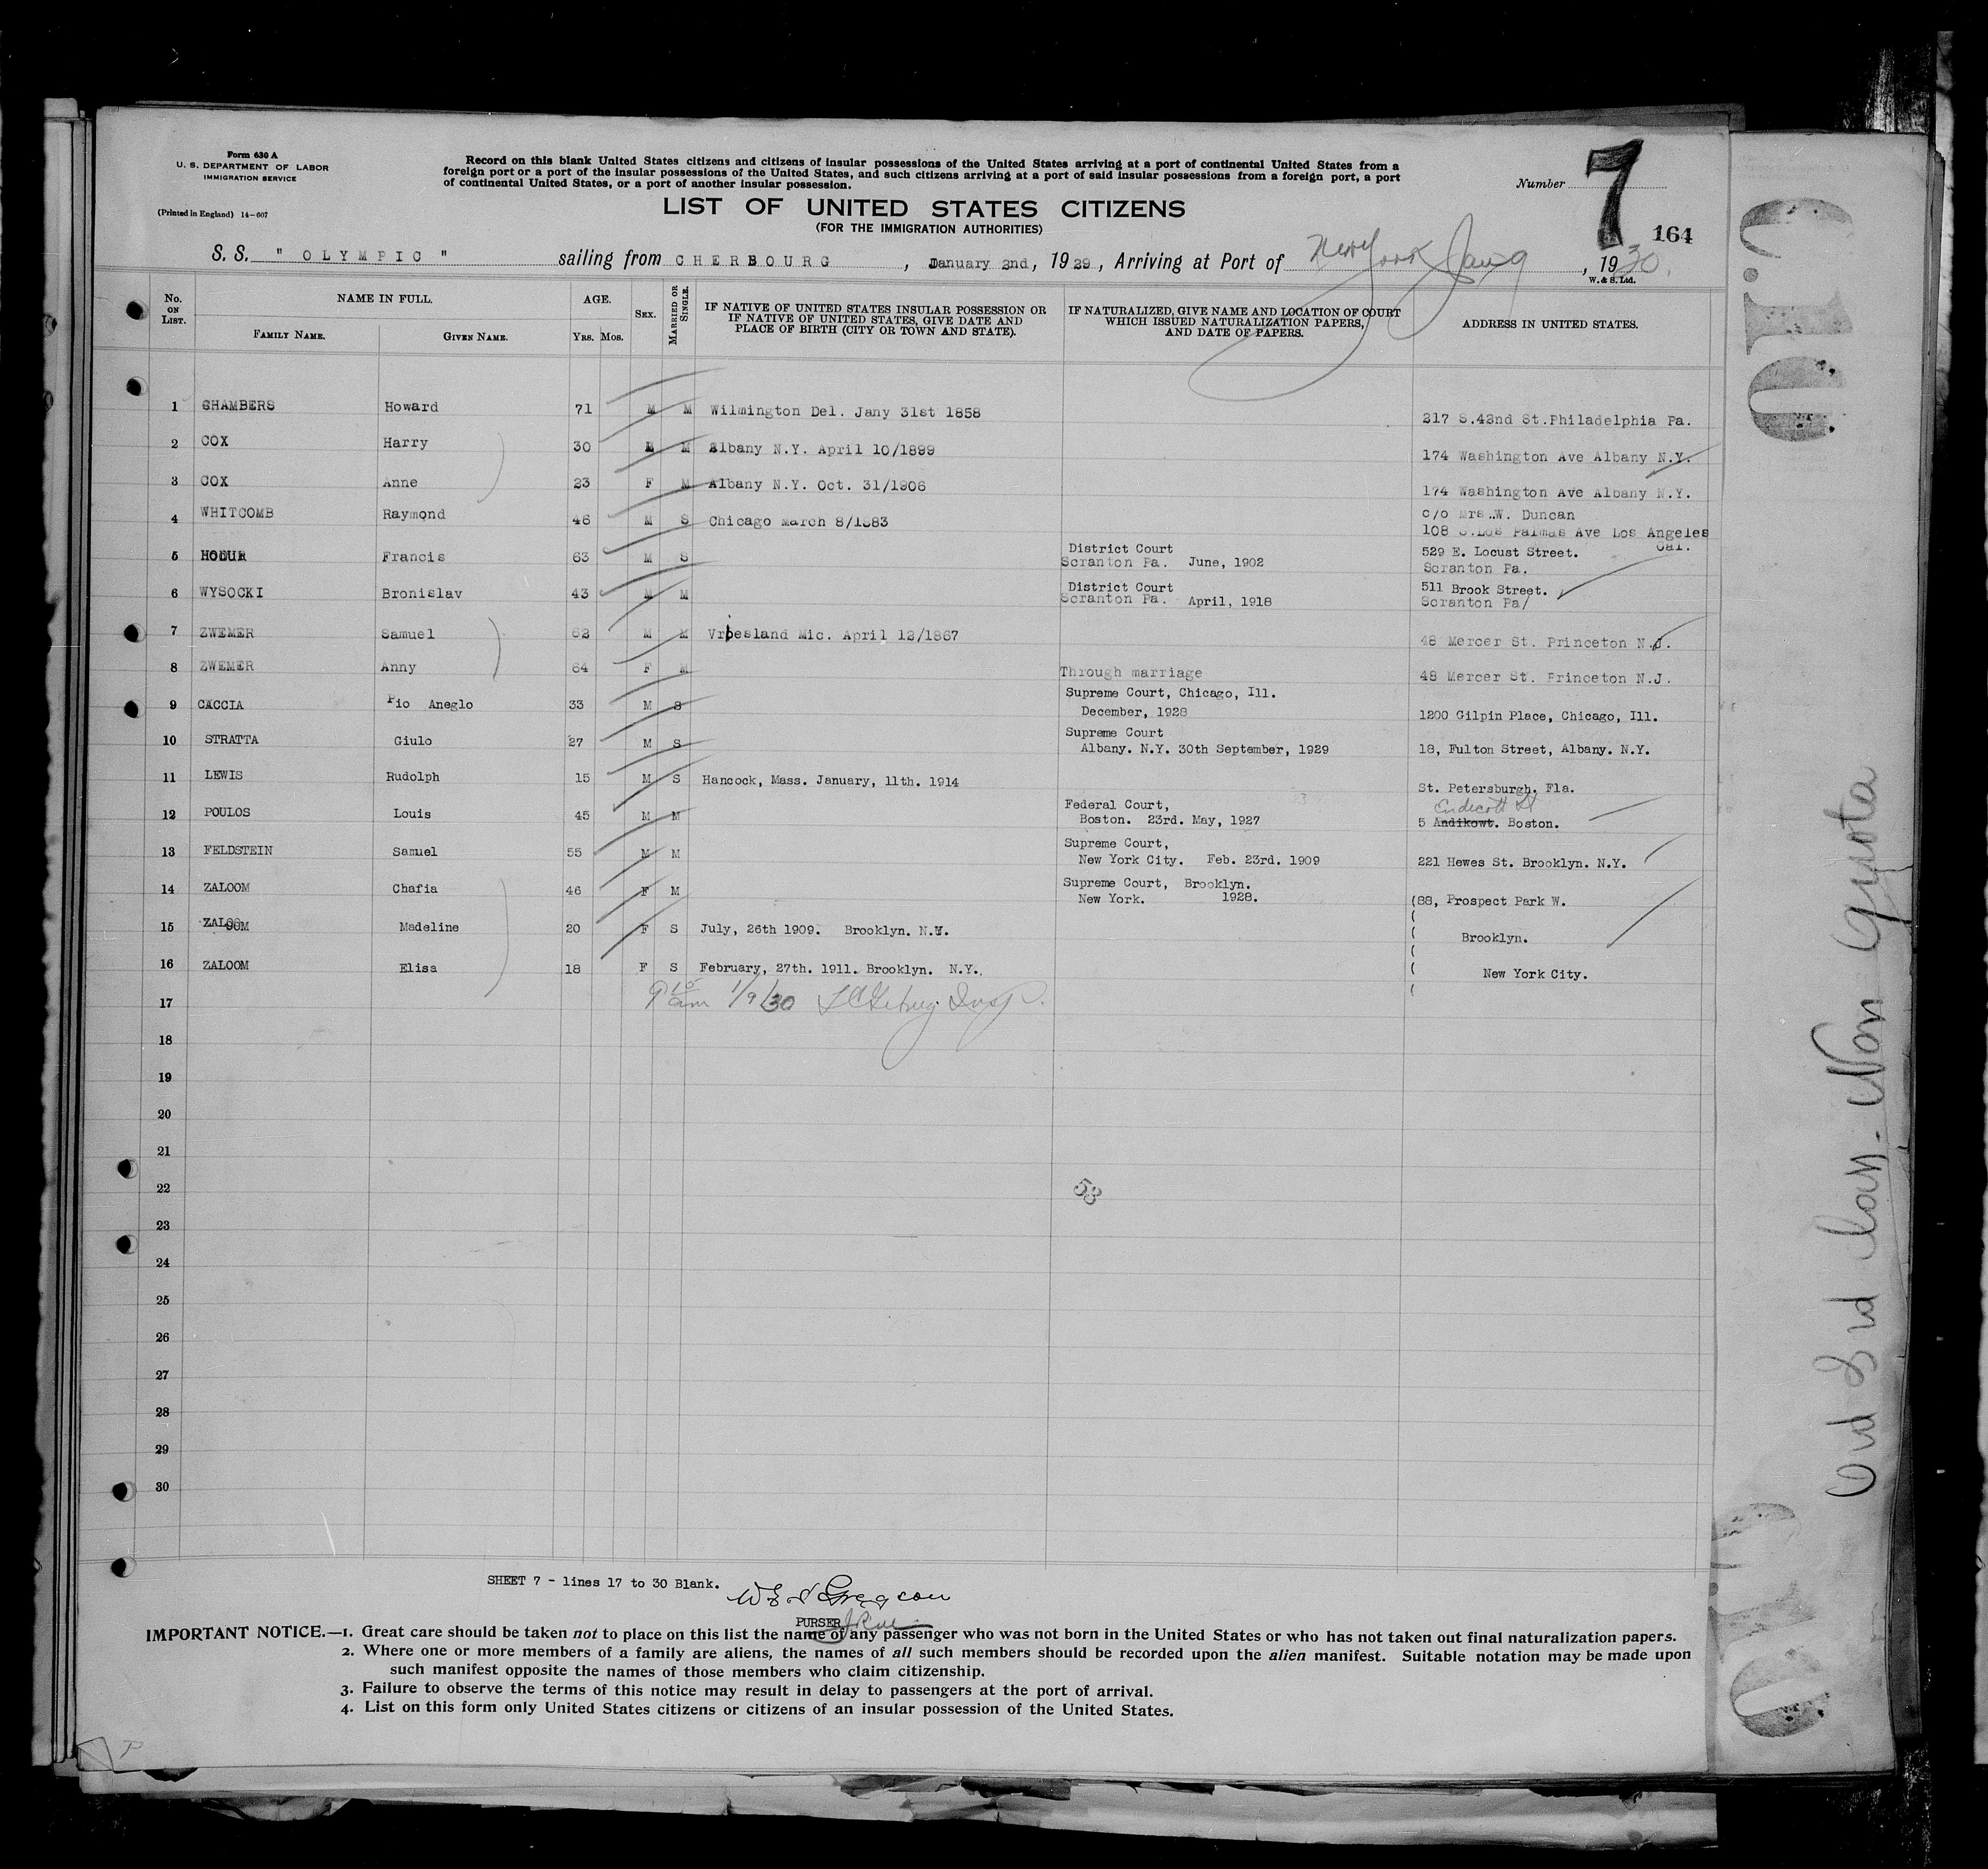 Form 630 A
U. S. DEPARTMENT OF LABOR
IMMIGRATION SERVICE
(Printed in England) 14-607
Record on this blank United States citizens and citizens of insular possessions of the United States arriving at a port of continental United States from a
foreign port or a port of the insular possessions of the United States, and such citizens arriving at a port of said insular possessions from a foreign port, a port
of continental United States, or a port of another insular possession.
Number 7
164
LIST OF UNITED STATES CITIZENS
(FOR THE IMMIGRATION AUTHORITIES)
S. S. " OLYMPIC " sailing from CHERBOURG, January 2nd, 1929, Arriving at Port of New York Jany 9, 1930.
W. & S. Ltd.
No. ON LIST. NAME IN FULL. AGE. SEX. MARRIED OR SINGLE. IF NATIVE OF UNITED STATES INSULAR POSSESSION OR IF NATIVE OF UNITED STATES, GIVE DATE AND PLACE OF BIRTH (CITY OR TOWN AND STATE). IF NATURALIZED, GIVE NAME AND LOCATION OF COURT WHICH ISSUED NATURALIZATION PAPERS, AND DATE OF PAPERS. ADDRESS IN UNITED STATES.
FAMILY NAME. GIVEN NAME. YRS. MOS.
1 CHAMBERS Howard 71 M M Wilmington Del. Jany 31st 1858 217 S.42nd St.Philadelphia Pa.
2 COX Harry 30 M M Albany N.Y. April 10/1899 174 Washington Ave Albany N.Y.
3 COX Anne 23 F M Albany N.Y. Oct. 31/1906 174 Washington Ave Albany N.Y.
4 WHITCOMB Raymond 46 M S Chicago March 8/1883 c/o Mrs.W. Duncan
108 S.Los Palmas Ave Los Angeles
Cal.
5 HODUR Francis 63 M S District Court 529 E. Locust Street.
Scranton Pa. June, 1902 Scranton Pa.
6 WYSOCKI Bronislav 43 M M District Court 511 Brook Street.
Scranton Pa. April, 1918 Scranton Pa/
7 ZWEMER Samuel 62 M M Vriesland Mic. April 12/1867 48 Mercer St. Princeton N.J.
8 ZWEMER Anny 64 F M Through marriage 48 Mercer St. Princeton N.J.
9 CACCIA Pio Aneglo 33 M S Supreme Court, Chicago, Ill.
December, 1928 1200 Gilpin Place, Chicago, Ill.
10 STRATTA Giulo 27 M S Supreme Court
Albany. N.Y. 30th September, 1929 18, Fulton Street, Albany. N.Y.
11 LEWIS Rudolph 15 M S Hancock, Mass. January, 11th. 1914 St. Petersburgh. Fla.
12 POULOS Louis 45 M M Federal Court, Endicott St
Boston. 23rd. May, 1927 5 Andikowt. Boston.
13 FELDSTEIN Samuel 55 M M Supreme Court,
New York City. Feb. 23rd. 1909 221 Hewes St. Brooklyn. N.Y.
14 ZALOOM Chafia 46 F M Supreme Court, Brooklyn.
New York. 1928. (88, Prospect Park W.
15 ZALOOM Madeline 20 F S July, 26th 1909. Brooklyn. N.Y. Brooklyn.
16 ZALOOM Elisa 18 F S February, 27th. 1911. Brooklyn. N.Y. New York City.
17 9 15 am 1/9/30
18
19
20
21
22
53
23
24
25
26
27
28
29
30
SHEET 7 - lines 17 to 30 Blank.
PURSER
IMPORTANT NOTICE.—1. Great care should be taken not to place on this list the name of any passenger who was not born in the United States or who has not taken out final naturalization papers.
2. Where one or more members of a family are aliens, the names of all such members should be recorded upon the alien manifest. Suitable notation may be made upon
such manifest opposite the names of those members who claim citizenship.
3. Failure to observe the terms of this notice may result in delay to passengers at the port of arrival.
4. List on this form only United States citizens or citizens of an insular possession of the United States.
3rd Non Quota